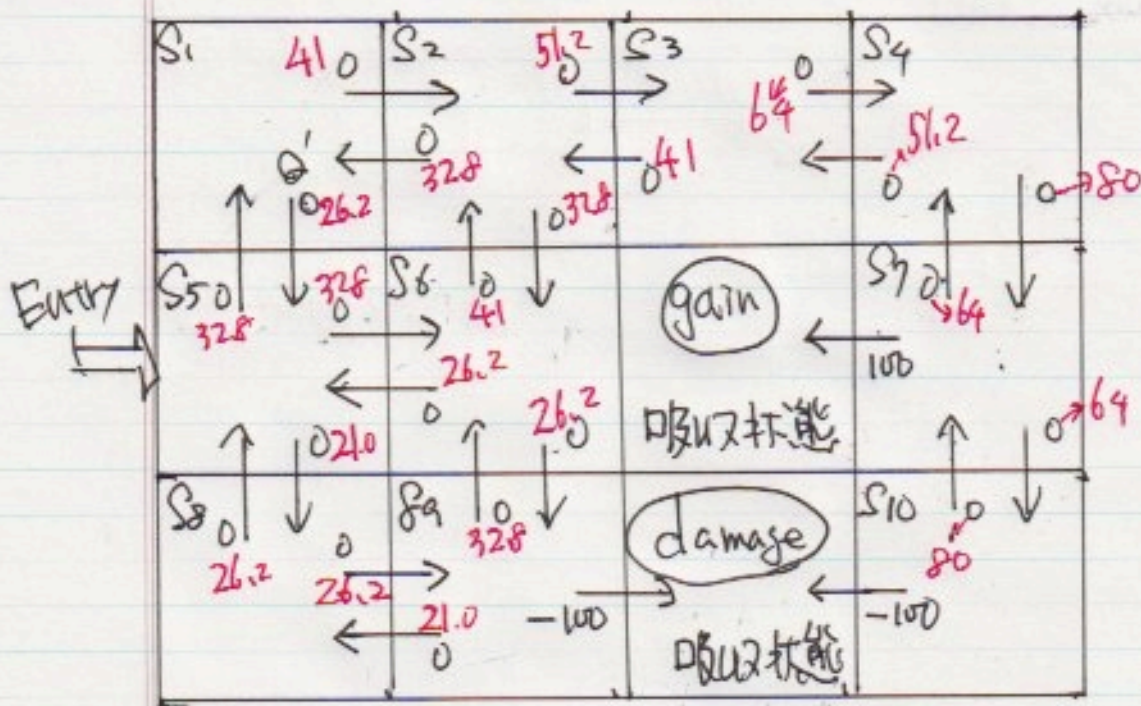 S1 41 0 S2 51.2 0 S3 0 64 S4
Q' 0 328 0 41 0 51.2
0 26.2 0 328 0 80
Entry S5 0 328 328 0 S6 0 41 gain S7 0 64
26.2 0 100
0 21.0 26.2 0 吸収状態 0 64
S8 0 26.2 0 26.2 S9 0 328 damage S10 0 80
21.0 0 -100 -100
吸収状態